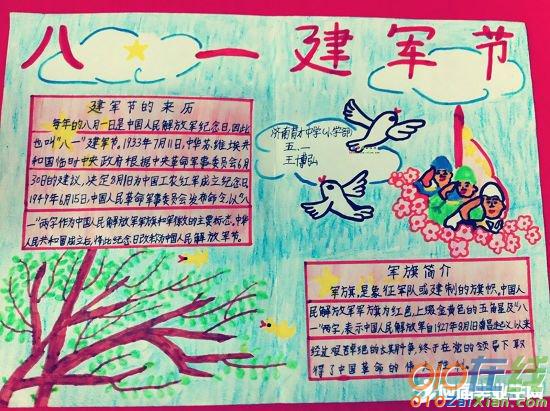 八一建军节
建军节的来历
每年的八月一日是中国人民解放军纪念日,因此
也叫"八一"建军节。1933年7月11日,中华苏维埃共
和国临时中央政府根据中央革命军事委员会6月
30日的建议,决定8月1日为中国工农红军成立纪念日
1949年6月15日,中国人民革命军事委员会发布命令,以"八
一"两字作为中国人民解放军军旗和军徽的主要标志,中华
人民共和国成立后,将此纪念日改称为中国人民解放军节。
济南育才中学(小学部)
五.一
王博弘
军旗简介
军旗,是象征军队或建制的旗帜,中国人
民解放军军旗为红色,上缀金黄色的五角星及"八
一"两字,表示中国人民解放军自1927年8月1日南昌起义以来
经过艰苦卓绝的 终于在党的领导下取
得了中国革命的伟
910在线
910zaixian.com